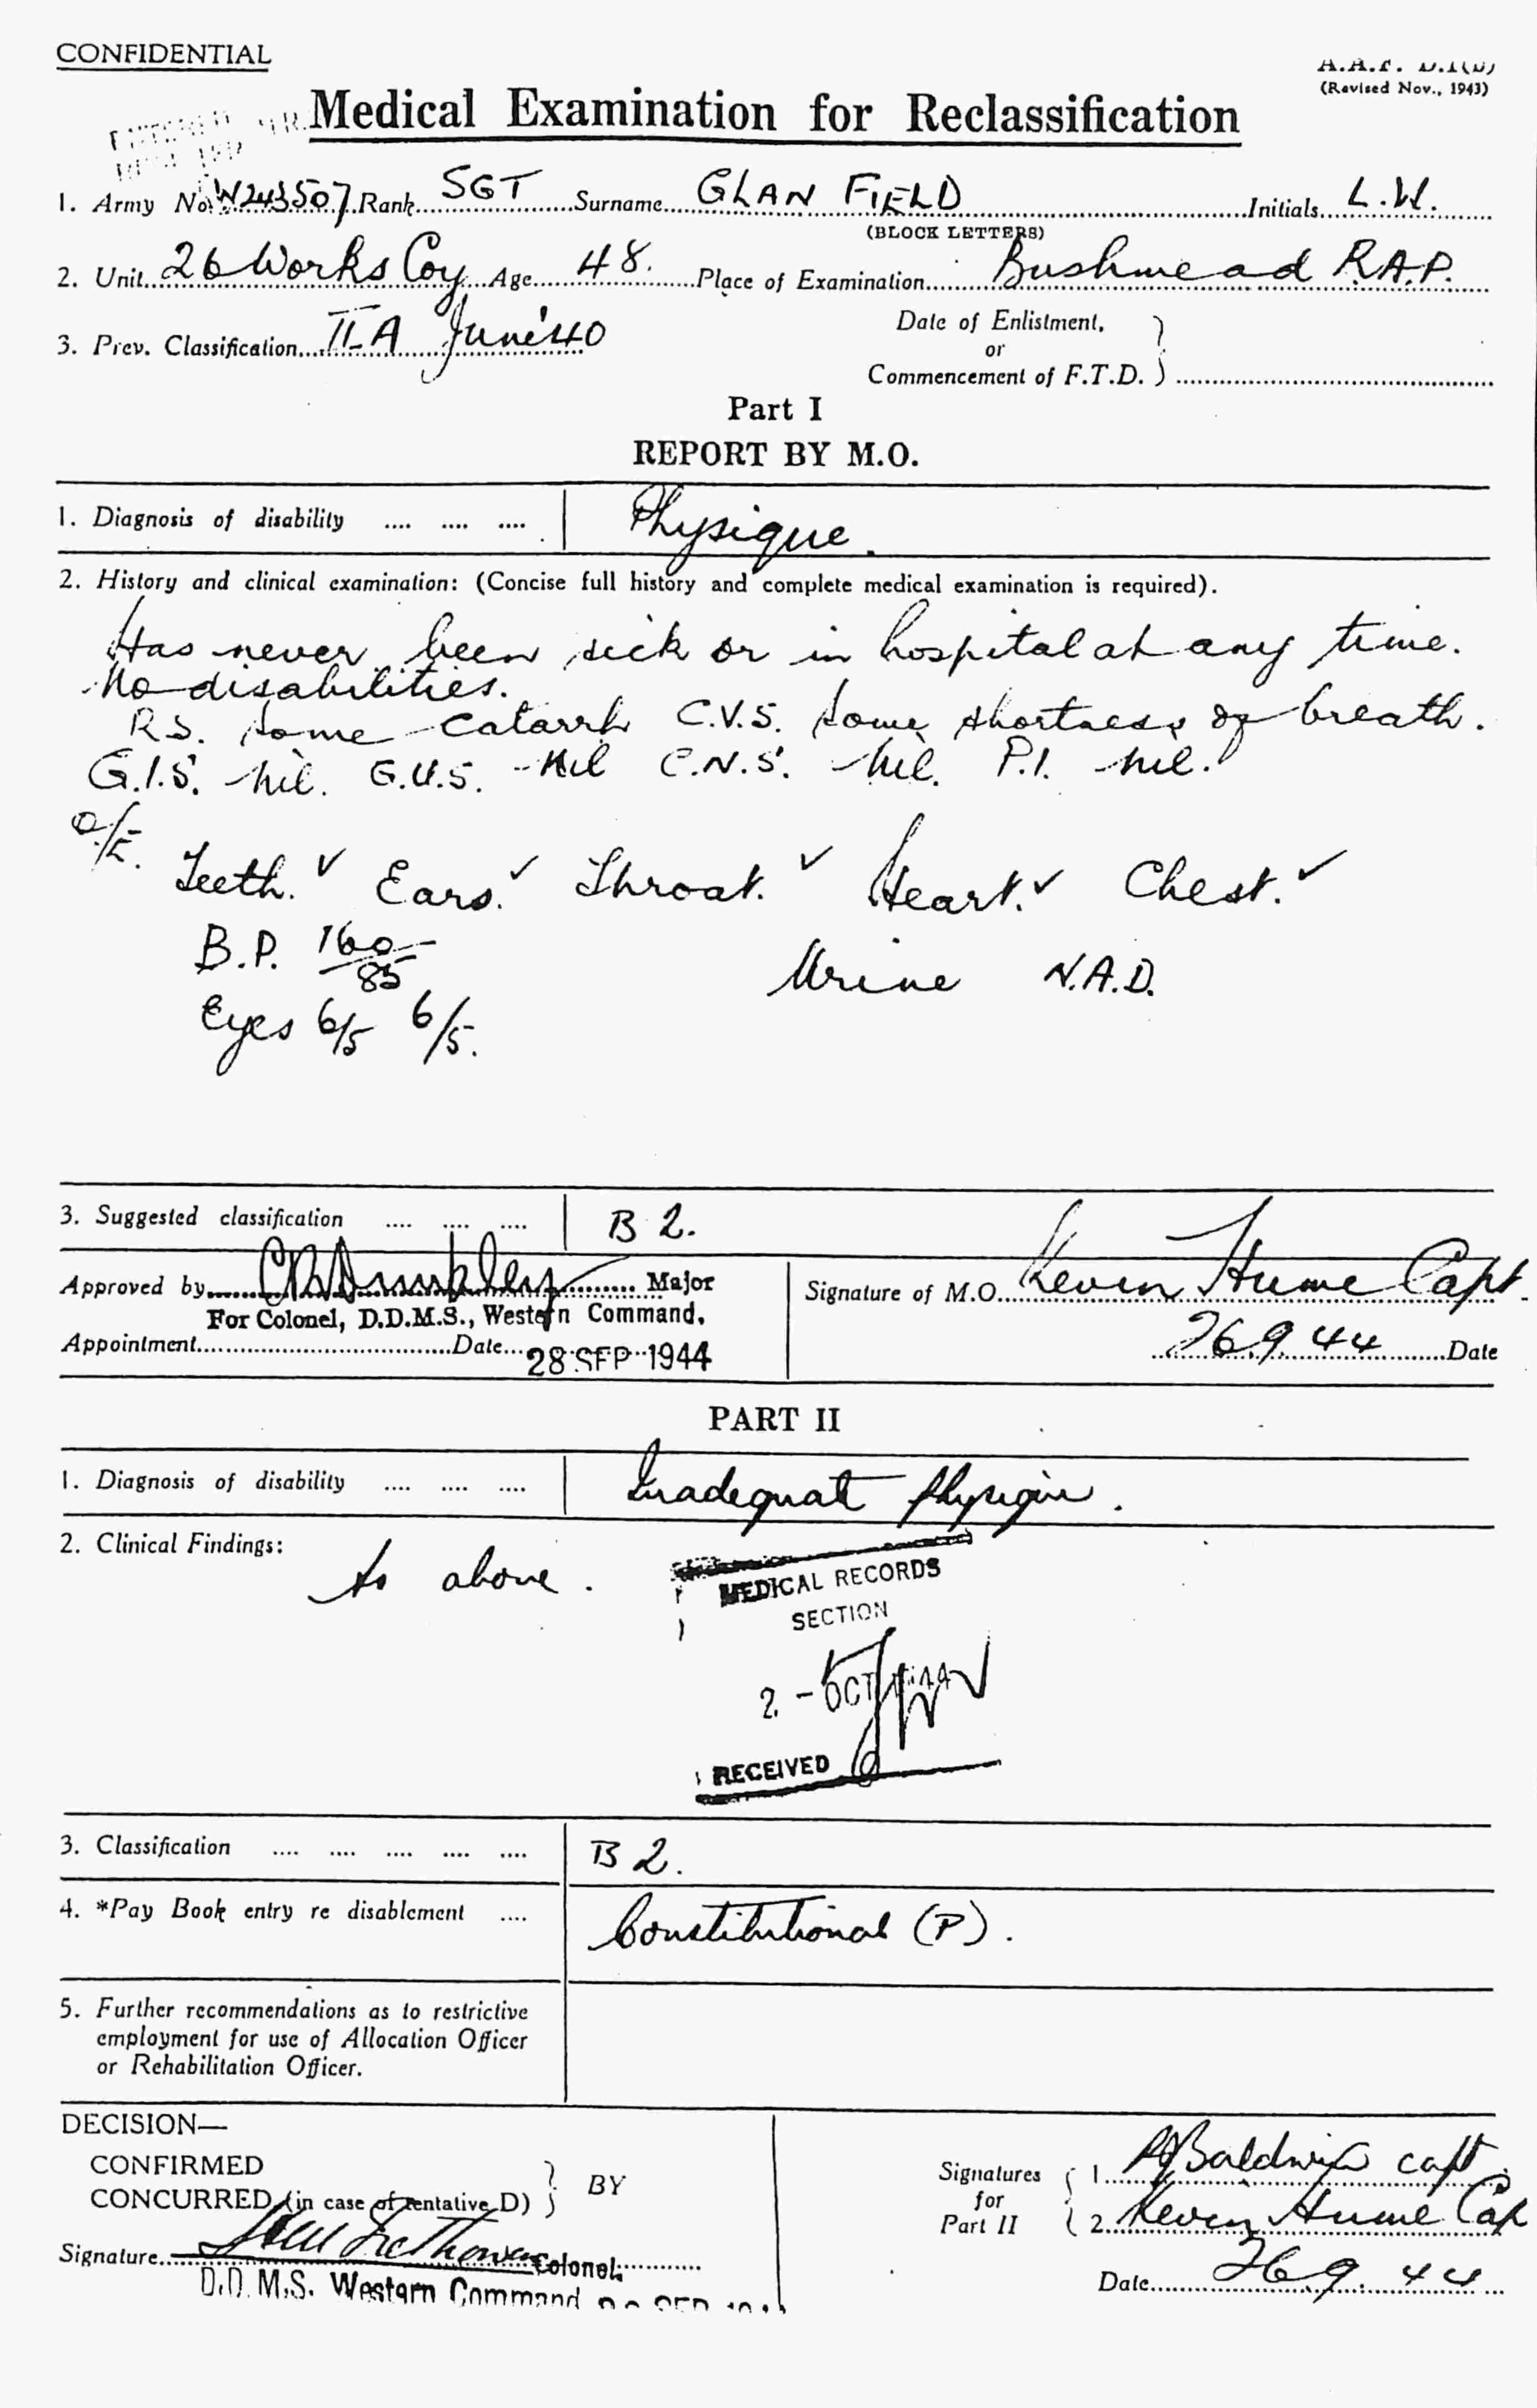 CONFIDENTIAL
(Revised Nov., 1943)
Medical Examination for Reclassification
1. Army No. W243507 Rank SGT Surname GLANFIELD Initials L.W.
(BLOCK LETTERS)
2. Unit 26 Works Coy Age 48. Place of Examination Bushmead R.A.P.
3. Prev. Classification II A June '40
Date of Enlistment,
or
Commencement of F.T.D.
Part I
REPORT BY M.O.
1. Diagnosis of disability .... .... .... Physique.
2. History and clinical examination: (Concise full history and complete medical examination is required).
Has never been sick or in hospital at any time.
No disabilities.
R.S. some catarrh C.V.S. some shortness of breath.
G.I.S. nil. G.U.S. nil C.N.S. nil. P.I. nil.
O/E.
Teeth. ✓ Ears. ✓ Throat. ✓ Heart. ✓ Chest. ✓
B.P. 160/85
Urine N.A.D.
Eyes 6/5 6/5.
3. Suggested classification .... .... .... B 2.
Approved by Major
For Colonel, D.D.M.S., Western Command.
Appointment Date 28 SEP 1944
Signature of M.O. Kevin Hume Capt.
26.9.44 Date
PART II
1. Diagnosis of disability .... .... .... Inadequate physique.
2. Clinical Findings:
As above.
MEDICAL RECORDS
SECTION
2 - OCT 1944
RECEIVED
3. Classification .... .... .... .... .... B 2.
4. *Pay Book entry re disablement .... Constitutional (P).
5. Further recommendations as to restrictive
employment for use of Allocation Officer
or Rehabilitation Officer.
DECISION—
CONFIRMED
CONCURRED (in case of tentative D) } BY
Signature Colonel.
D.D.M.S. Western Command
Signatures
for
Part II
1. Baldwin capt.
2. Kevin Hume Cap
Date 26.9.44